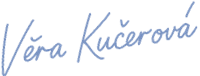 Věra Kučerová